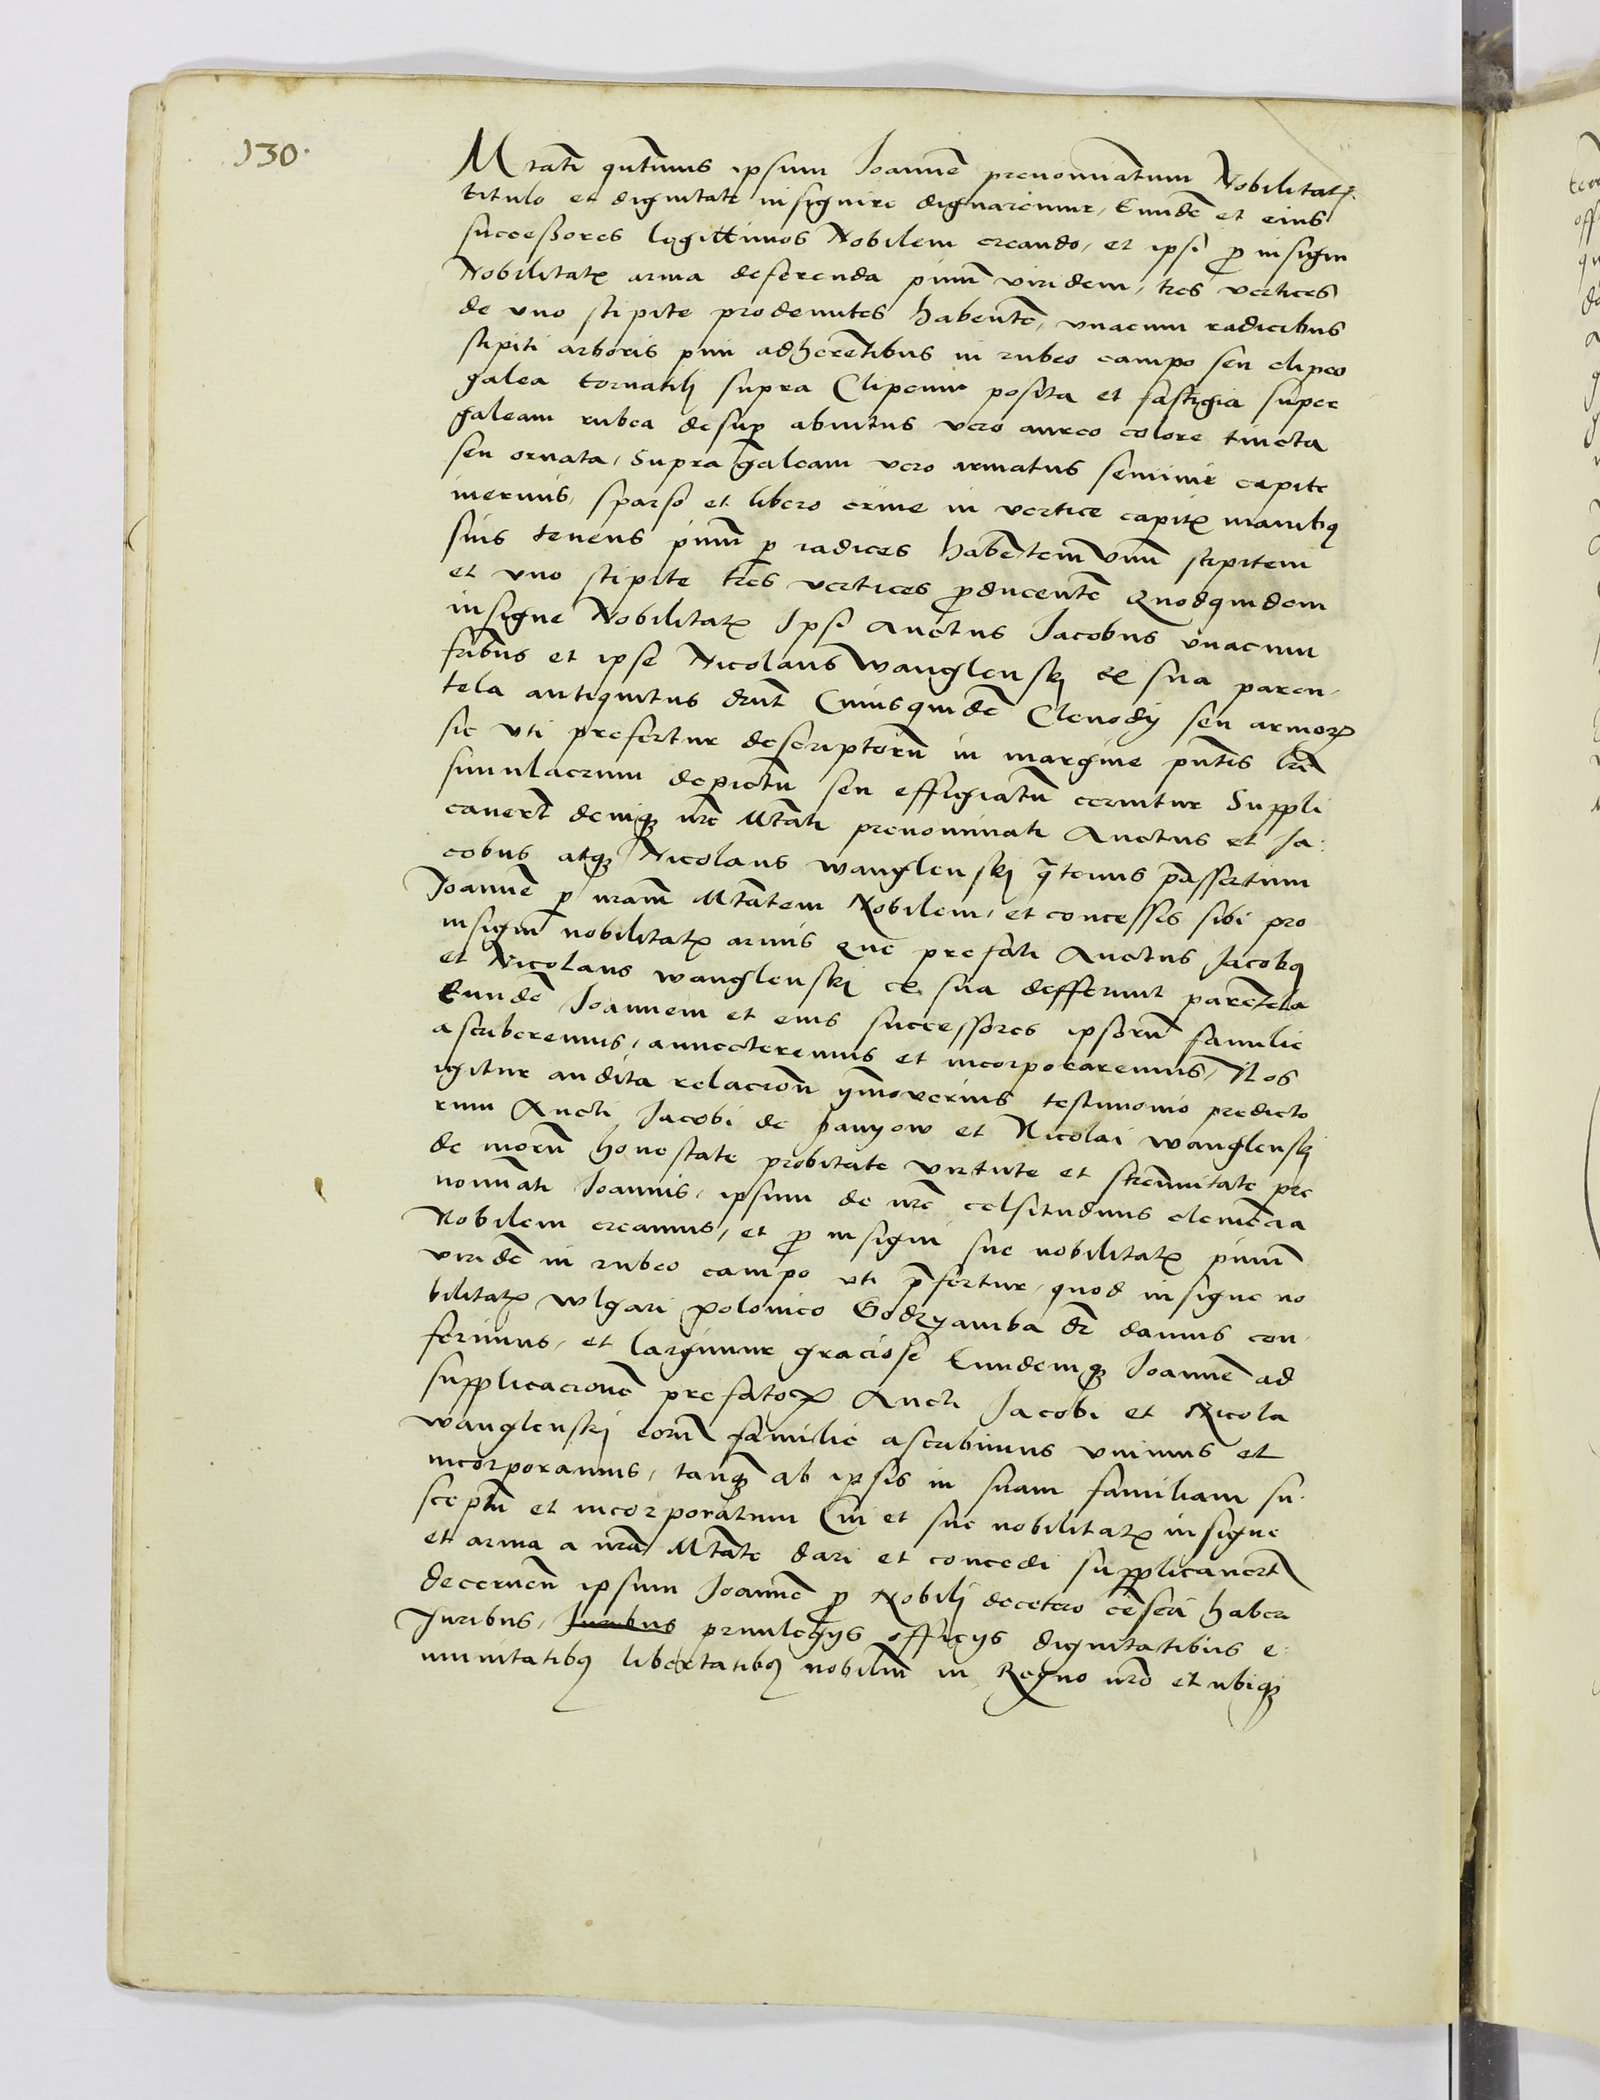 130.
Mtati qutenus ipsum Joannē prenominatum Nobilitatꝭ
titulo et dignitate insignire dignaremur, Eundē et eius
successores legittimos Nobilem creando, et ipsi ꝓ insigni
Nobilitatꝭ arma deferenda pinū viridem, tres vertices
de vno stipite prodeuntes habentē, vnacum radicibus
stipiti arboris pini adherētibus in rubeo campo seu clipeo
galea tornatilj supra Clipeum posita et fastigia super
galeam rubea desuꝑ abintus vero aureo colore tincta
seu ornata, Supra galeam vero armatus semivir capite
inermis, sparso et libero crine in vertice capitꝭ manibꝰ
suis tenens pinū ꝑ radices habentem vnū stipitem
et vno stipite tres vertices ꝓducentē Quodquidem
insigne Nobilitatꝭ Ipsi Anctus Jacobus vnacum
fribus et ipse Nicolaus wanglenskj et sua paren,
tela antiquitus drūt Cuiusquidē Clenodij seu armoꝝ
sic vti prefertur descriptorū in margine pntis lrē
simulacrum depictū seu effigiatū cernitur Suppli
cauerūt deniqꝫ nrē Mtati prenominati Anctus et Ja:
cobus atqꝫ Nicolaus wanglenskj q̄tenus p̄assertum
Joannē ꝑ nram Mtatem Nobilem, et concessis sibi pro
insigni nobilitatꝭ armis Que prefati Anctus Jacobꝰ
et Nicolaus wanglenskj et sua defferunt parētela
Eundē Joannem et eius successores ipsorū familie
ascriberemus, annecteremus et incorporaremus, Nos
igitur audita relacion ymoverius testimonio predicto
rum Ancti Jacobi de panyow et Nicolai wanglenskj
de morū honestate probitate virtute et strēnuitate pre
nominati Joannis, ipsum de nrē celsitudinis clemēcia
Nobilem creamus, et ꝓ insigni sue nobilitatꝭ pinū
viridē in rubeo campo vti p̄fertur, quod insigne no
bilitatꝭ wlgari polonico Godzyamba dr̄ damus con,
ferimus, et largimur graciose Eundemqꝫ Joannē ad
supplicacionē prefatoꝝ Ancti Jacobi et Nicola
wanglenskj eorū familie ascribimus vnimus et
incorporamus, tanqꝫ ab ipsis in suam familiam su:
sceptū et incorporatum Cui et sue nobilitatꝭ insigne
et arma a nra Mtate dari et concedi supplicauerūt
decernen̄ ipsum Joannē ꝓ Nobilj decetero cēseri haberi
Juribus, Juribus priuilegijs officijs dignitatibus e:
minitatibꝰ libertatibꝰ nobiliū in Regno nrō et vbiqꝫ